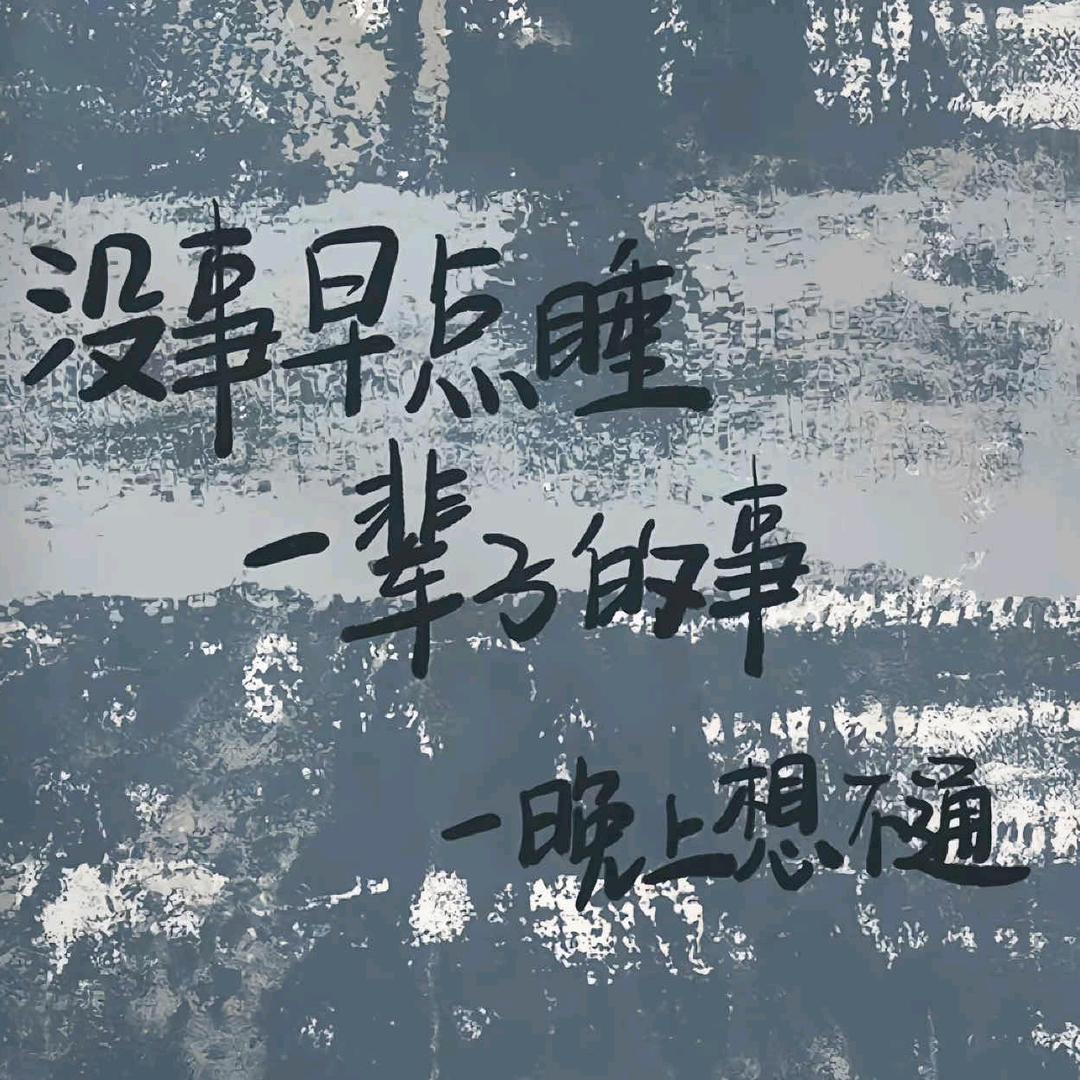 没事早点睡
一辈子的事
一晚上想不通